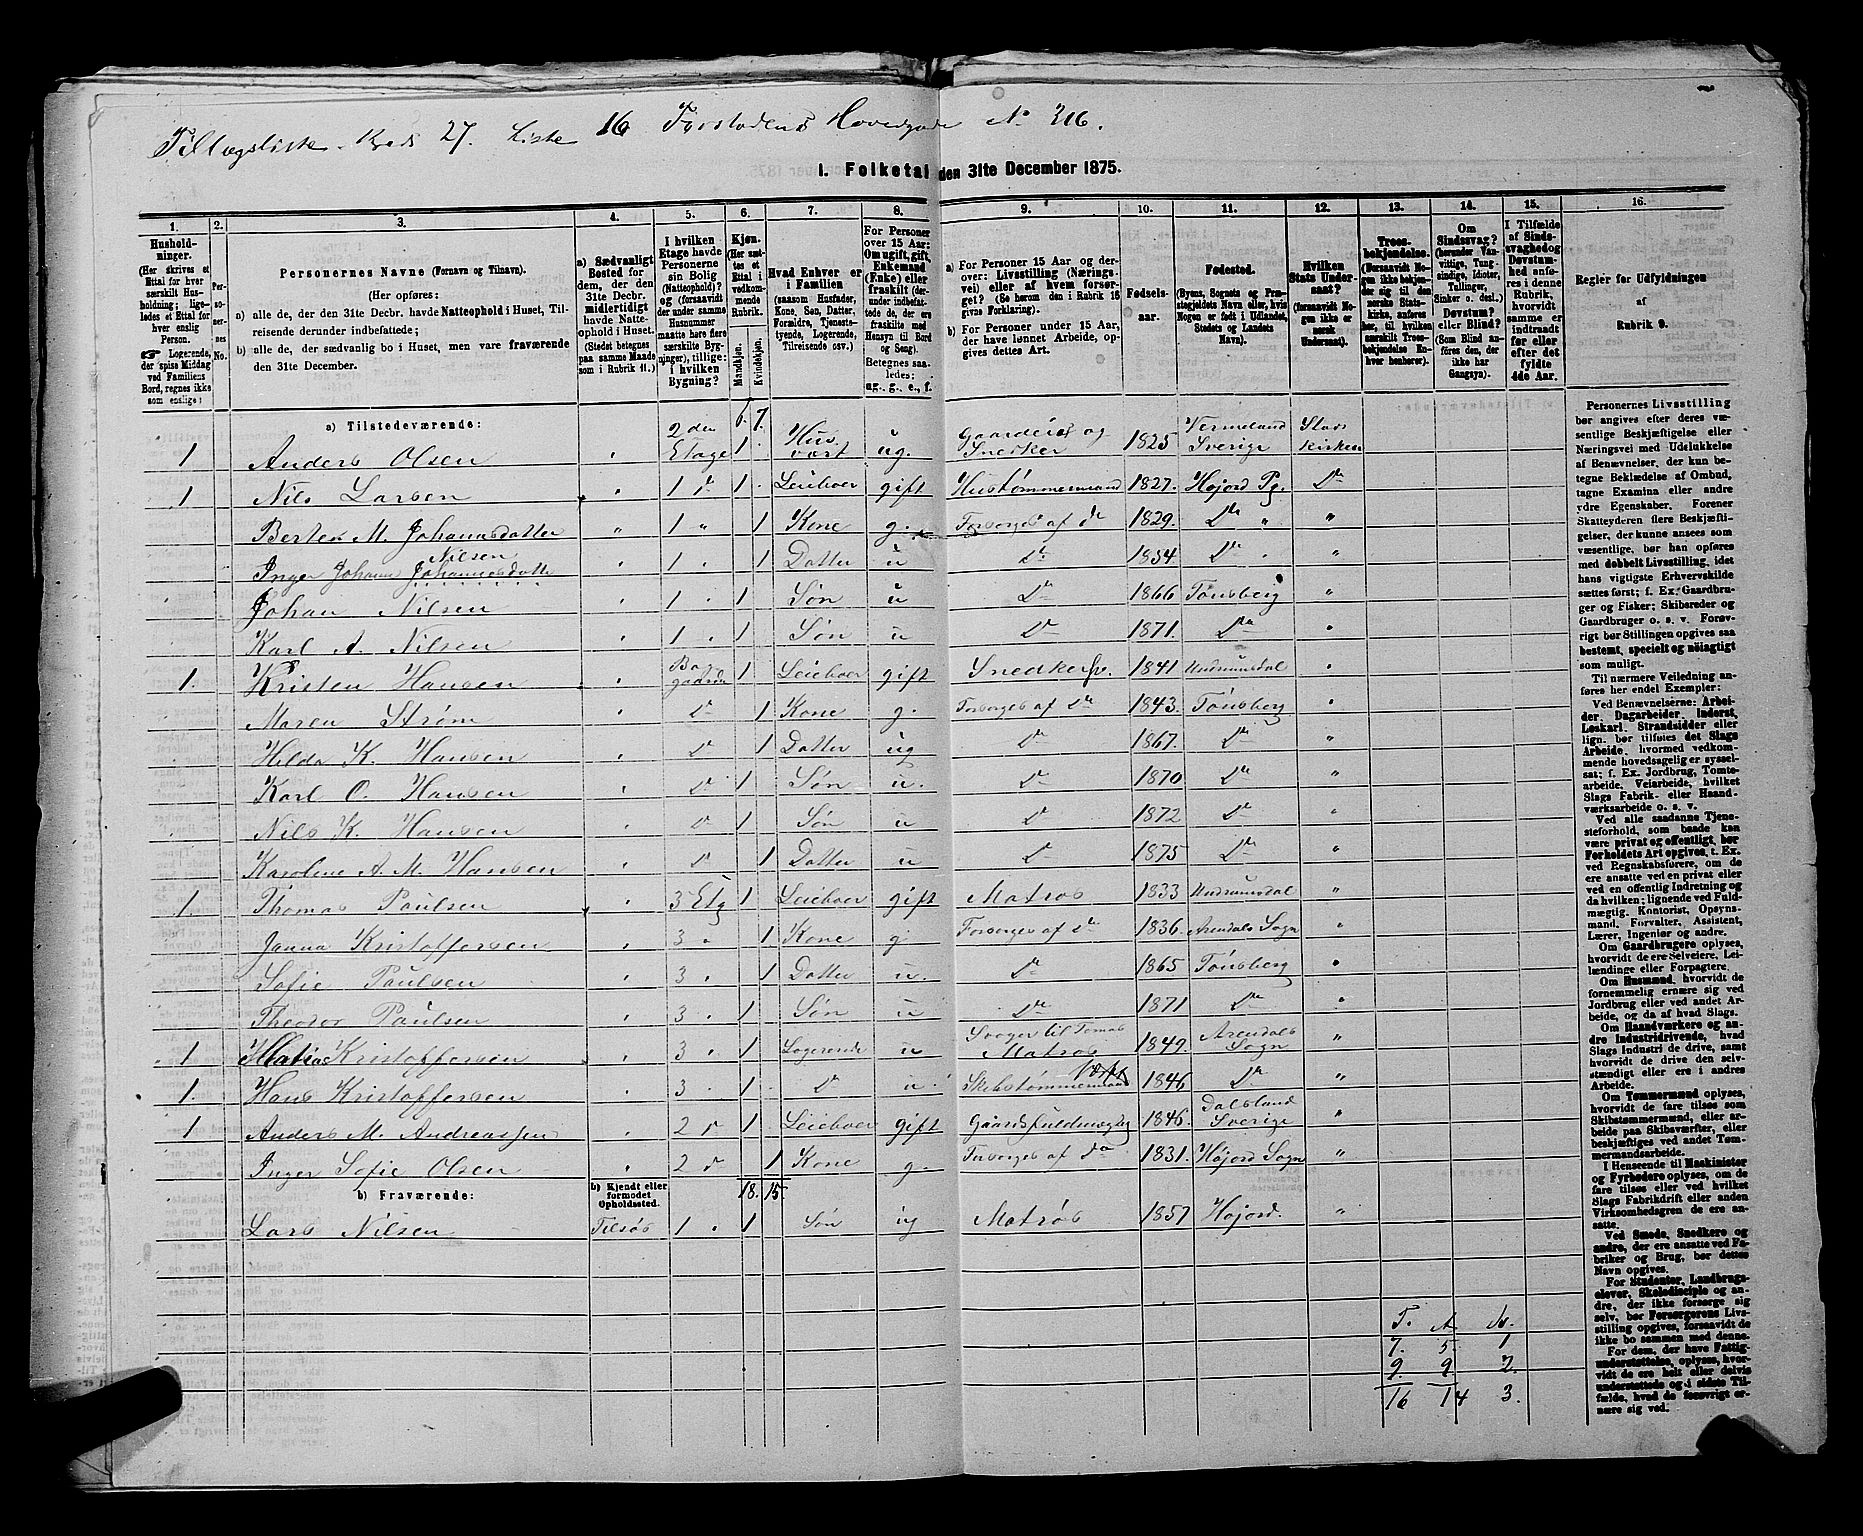 Tillægsliste. Kreds 27. Liste 16 Forstadens Hovedgade No 316.
I. Folketal den 31te December 1875.
1. 2. 3. 4. 5. 6. 7. 8. 9. 10. 11. 12. 13. 14. 15. 16.
Husholdninger. (Her skrives et Ettal for hver særskilt Husholdning; ligeledes et Ettal for hver enslig Person. ☞ Logerende, der spise Middag ved Familiens Bord, regnes ikke som enslige)
Personernes No.
Personernes Navne (Fornavn og Tilnavn).
(Her opføres:
a) alle de, der den 31te Decbr. havde Natteophold i Huset, Tilreisende derunder indbefattede;
b) alle de, der sædvanlig bo i Huset, men vare fraværende den 31te December.
a) Sædvanligt Bosted for dem, der den 31te Decbr. havde midlertidigt Natteophold i Huset. (Stedet betegnes paa samme Maade som i Rubrik 11.)
I hvilken Etage havde Personerne sin Bolig (Natteophold)? og (forsaavidt der under samme Husnummer maatte høre flere særskilte Bygninger), tillige: i hvilken Bygning?
Kjøn. (Her sættes et Ettal i vedkommende Rubrik.
Mandkjøn. Kvindekjøn.
Hvad Enhver er i Familien (saasom Husfader, Kone, Søn, Datter, Forældre, Tjenestetyende, Logerende, Tilreisende osv.)
For Personer over 15 Aar: Om ugift, gift, Enkemand (Enke) eller fraskilt (derunder indbefattede de, der ere fraskilte med Hensyn til Bord og Seng). Betegnes saaledes: ug., g., e., f.
a) For Personer 15 Aar og derover: Livsstilling (Næringsvei) eller af hvem forsørget? (Se herom den i Rubrik 16 givne Forklaring).
b) For Personer under 15 Aar, der have lønnet Arbeide, opgives dettes Art.
Fødselsaar.
Fødested. (Byens, Sognets og Præstegjeldets Navn eller, hvis Nogen er født i Udlandet, Stedets og Landets Navn).
Hvilken Stats Undersaat? (forsaavidt Nogen ikke er norsk Undersaat).
Troesbekjendelse. (Forsaavidt Nogen ikke bekjender sig til den norske Statskirke, anføres her, til hvilken særskilt Troesbekjendelse Enhver henhører).
Om Sindssvag? (herunder Vanvittige, Tungsindige, Idioter, Tullinger, Sinker o. desl.) Døvstum? eller Blind? (Som Blind anføres den, der ikke har Gangsyn).
I Tilfælde af Sindssvaghed og Døvstumhed anføres i denne Rubrik, hvorvidt samme er indtraadt før eller efter det fyldte 4de Aar.
Regler for Udfyldningen
af
Rubrik 9.
a) Tilstedeværende: 6. 7.
1 Anders Olsen 2den Etage 1 Husvært ug. Gaardeier og Snedker 1825 Vermeland Sverige Stats Kirken
1 Nils Larsen 1 do 1 Leieboer gift Hustømmermand 1827. Højord Pg. Do
Berten M. Johannsdatter 1 " 1 Kone g. Forsørges af do 1829. Do "
Nilsen
Inger Johann Johannesdatter 1 1 Datter u Do 1854 Do "
Johan Nilsen 1 1 Søn u Do 1866 Tönsberg "
Karl A. Nilsen 1 1 Søn u Do 1871. Do "
1. Kristen Hansen Baggaarden 1 Leieboer gift Snedkersv. 1841 Undrumsdal
Maren Strøm Do 1 Kone g. Forsørges af Do 1843. Tönsberg
Hilda K. Hansen Do 1 Datter ug Do 1867. Do "
Karl O. Hansen Do 1 Søn u. Do 1870 Do "
Nils K. Hansen Do 1 Søn u Do 1872 Do "
Karoline A. M. Hansen Do 1 Datter u Do 1875 Do "
1. Thomas Paulsen 3 Etg 1 Leieboer gift Matros 1833 Undrumsdal "
Janna Kristoffersen 3 1 Kone g. Forsørges af Do 1836. Arendals Sogn "
Sofie Paulsen 3 1 Datter u. Do 1865 Tönsberg
Theodor Paulsen 3 1 Søn u Do 1871 Do
1 Matias Kristoffersen 3 1 Logerende u Svoger til Tomas Matros 1849. Arendals Sogn "
1. Hans Kristoffersen 3 1 Do u. Skibstømmermand Værft 1846 Do "
1 Anders M. Andreassen 2 Do 1 Leieboer gift Gaardsfuldmægtig 1846. Dalsland Sverige "
Inger Sofie Olsen 2 Do 1 Kone g. Forsørges af do 1831. Højord Sogn "
b) Fraværende: b) Kjendt eller formodet Opholdssted. 18. 15
Lars Nilsen Tilsøs 1 1 Søn ug Matros 1857 Højord.
T. A N.
7. 5. 1
9. 9 2.
16 14 3.
Personernes Livsstilling bør angives efter deres væsentlige Beskjæftigelse eller Næringsvei med Udelukkelse af Benævnelser, der kun betegne Beklædelse af Ombud, tagne Examina eller andre ydre Egenskaber. Forener Skatteyderen flere Beskjæftigelser, der kunne ansees som væsentlige, bør han opføres med dobbelt Livsstilling, idet hans vigtigste Erhvervskilde sættes først; f. Ex. Gaardbruger og Fisker; Skibsreder og Gaardbruger o. s. v. Forøvrigt bør Stillingen opgives saa bestemt, specielt og nöiagtigt som muligt.
Til nærmere Veiledning anføres her endel Exempler:
Ved Benævnelserne: Arbeider, Dagarbeider, Inderst, Løskarl, Strandsidder eller lign. bør tilføies det Slags Arbeide, hvormed vedkommende hovedsagelig er sysselsat; f. Ex. Jordbrug, Tomtearbeide, Veiarbeide, hvilket Slags Fabrik- eller Haandværksarbeide o. s. v.
Ved alle saadanne Tjenesteforhold, som baade kan være privat og offentligt, bør Forholdets Art opgives, t. Ex. ved Regnskabsførere, om de ere ansatte ved en privat eller ved en offentlig Indretning og da hvilken; lignende ved Fuldmægtig, Kontorist, Opsynsmand, Forvalter, Assistent, Lærer, Ingeniør og andre.
Om Gaardbrugere oplyses, hvorvidt de ere Selveiere, Leilændinge eller Forpagtere.
Om Husmænd, hvorvidt de fornemmelig ernære sig ved Jordbrug eller ved andet Arbeide, og da af hvad Slags.
Om Haandværkere og andre Industridrivende, hvad Slags Industri de drive, samt hvorvidt de drive den selvstændigt eller ere i andres Arbeide.
Om Tømmermænd oplyses, hvorvidt de fare tilsøs som Skibstømmermænd, eller arbeide paa Skibsværfter, eller beskjæftiges ved andet Tømmermandsarbeide.
I Henseende til Maskinister og Fyrbødere oplyses, om de fare tilsøs eller ved hvilket Slags Fabrikdrift eller anden Virksomhedsgren de ere ansatte.
Ved Smede, Snedkere og andre, der ere ansatte ved Fabriker og Brug, bør dettes Navn opgives.
For Studenter, Landbrugselever, Skoledisciple og andre, der ikke forsørge sig selv, bør Forsørgerens Livsstilling opgives, forsaavidt de ikke bo sammen med denne.
For dem, der have Fattigunderstøttelse, oplyses, hvorvidt de ere helt eller delvis understøttede og i sidste Tilfælde, hvad de forøvrigt ernære sig ved.